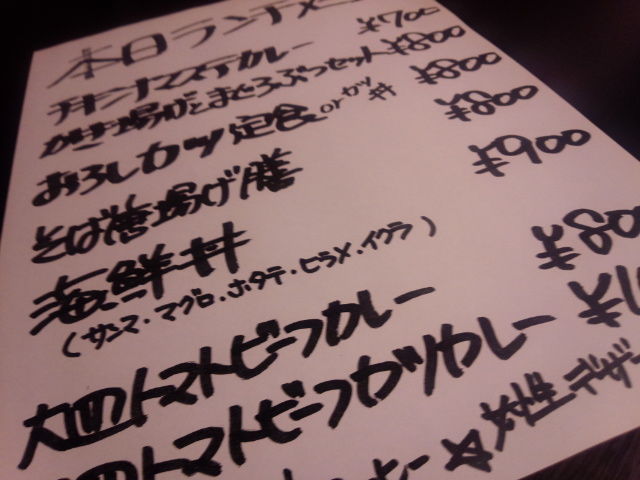 本日ランチメニ
チキンマステカレー ¥700
かき揚げとまぐろぶつセット ¥800
おろしカツ定食 orカツ丼 ¥800
そば唐揚げ膳 ¥800
海鮮丼 ¥900
(サンマ・マグロ・ホタテ・ヒラメ・イクラ)
大四トマトビーフカレー ¥800
四トマトビーフカツカレー ¥1
ー ☆女性デザ